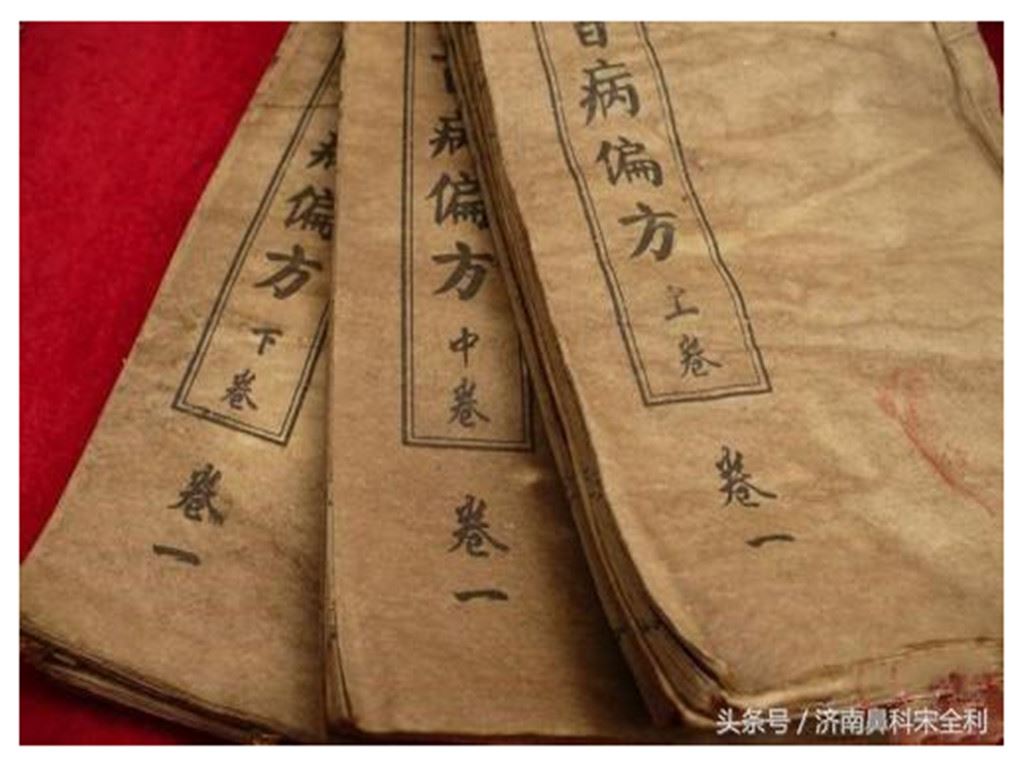 百病偏方
上卷
卷一
百病偏方
中卷
卷一
病偏方
下卷
卷一
头条号 / 济南鼻科宋全利